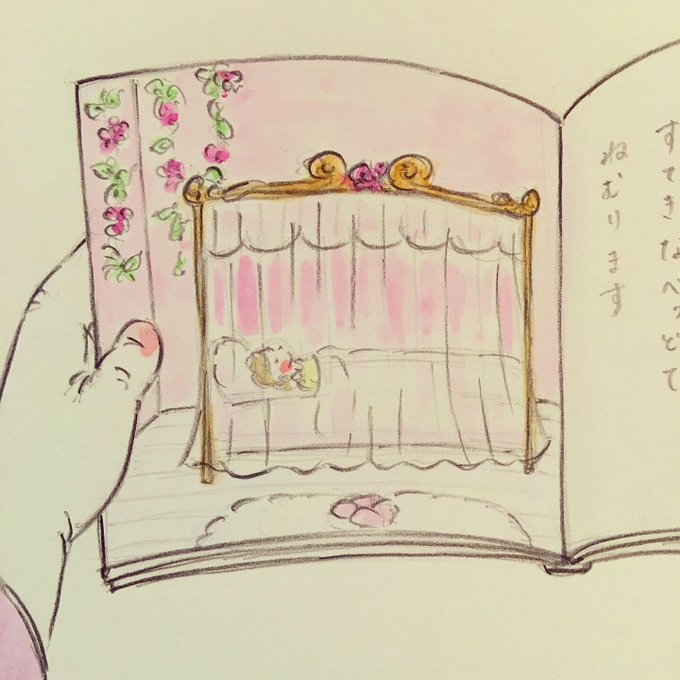 すてきなベッドで
ねむります